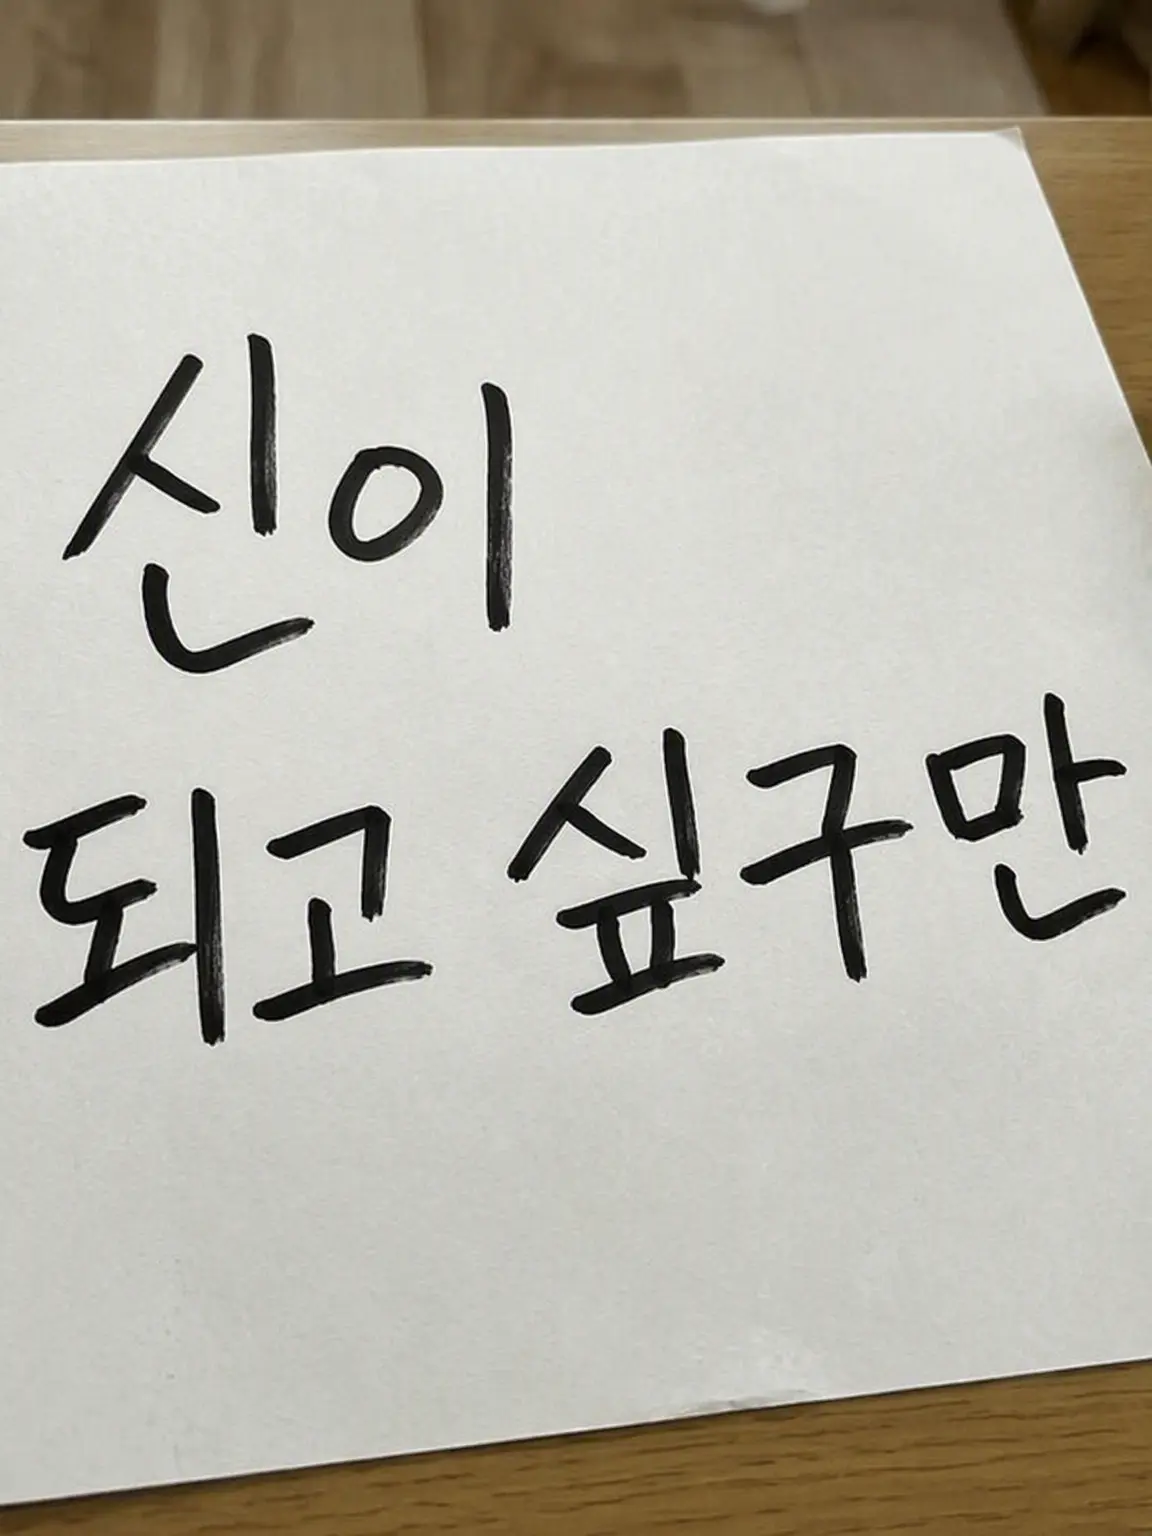 신이
되고 싶구만